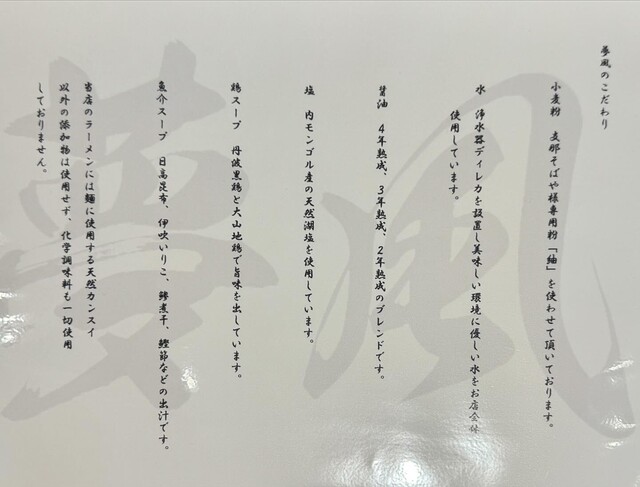 夢風のこだわり
小麦粉　支那そばや様専用粉「紬」を使わせて頂いております。
水　浄水器ディレカを設置し美味しい環境に優しい水をお店全体
使用しています。
醤油　4年熟成、3年熟成、2年熟成のブレンドです。
塩　内モンゴル産の天然湖塩を使用しています。
鶏スープ　丹波黒鶏と大山地鶏で旨味を出しています。
魚介スープ　日高昆布、伊吹いりこ、鯵煮干、鰹節などの出汁です。
当店のラーメンには麺に使用する天然カンスイ
以外の添加物は使用せず、化学調味料も一切使用
しておりません。
夢風